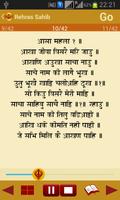 22:21
Rehras Sahib
Go
9/42
10/42
11/42
आसा महला १ ॥
आखा जीवा विसरै मरि जाउ ॥
आखणि अउखा साचा नाउ ॥
साचे नाम की लागै भूख ॥
उतु भूखै खाइ चलीअहि दूख ॥१॥
सो किउ विसरै मेरी माइ ॥
साचा साहिबु साचै नाइ ॥१॥ रहाउ ॥
साचे नाम की तिलु वडिआई ॥
आखि थके कीमति नही पाई ॥
जे सभि मिलि कै आखण पाहि ॥